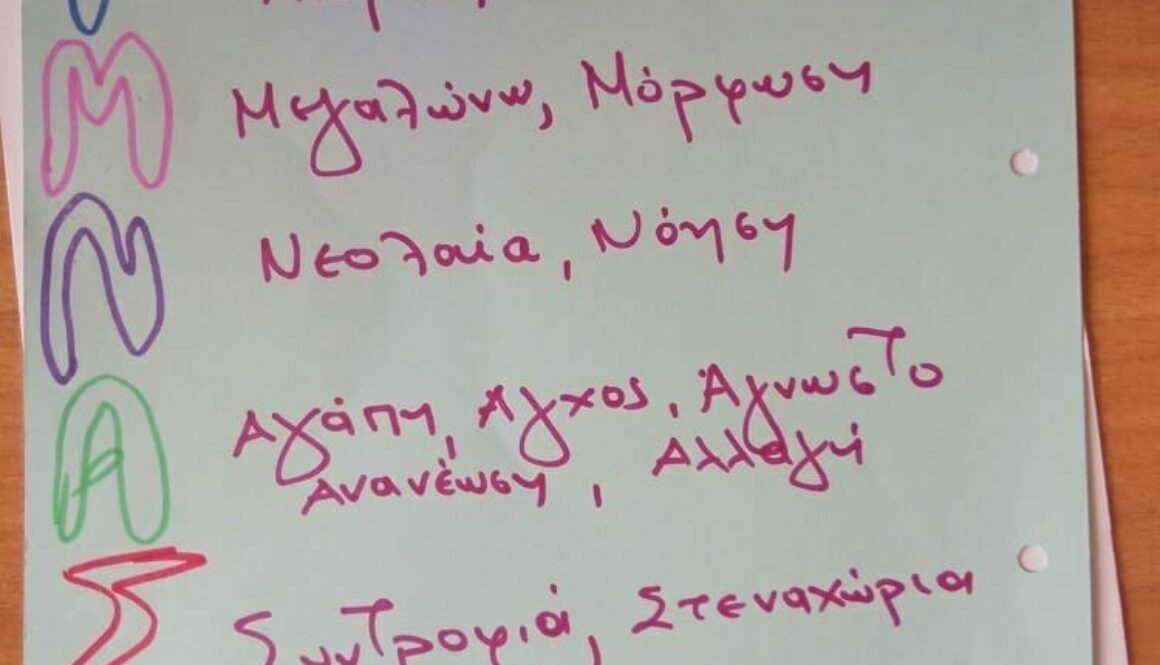 Μ Μεγαλώνω, Μόρφωση
Ν Νεολαία, Νόηση
Α Αγάπη, Άγχος, Άγνωστο
Ανανέωση, Αλλαγή
Σ Συντροφιά, Στεναχώρια